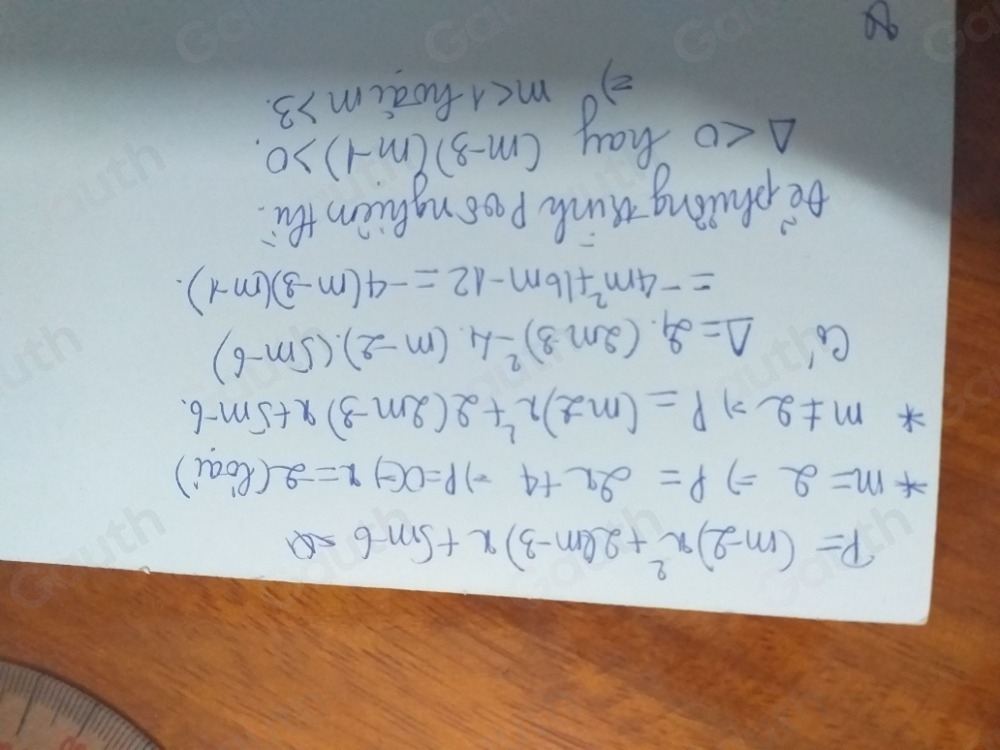 P = (m-2)x² + 2(2m-3)x + 5m-6 =
* m = 2 ⇒ P = 2x + 4 ⇒ P=0 ⇔ x = -2 (loại)
* m ≠ 2 ⇒ P = (m-2)x² + 2(2m-3)x + 5m-6.
Có Δ = 2². (2m-3)² - 4. (m-2).(5m-6)
= -4m² + 16m - 12 = -4(m-3)(m-1).
Để phương trình P vô nghiệm thì:
Δ < 0 hay (m-3)(m-1) > 0.
⇒ m < 1 hoặc m > 3.